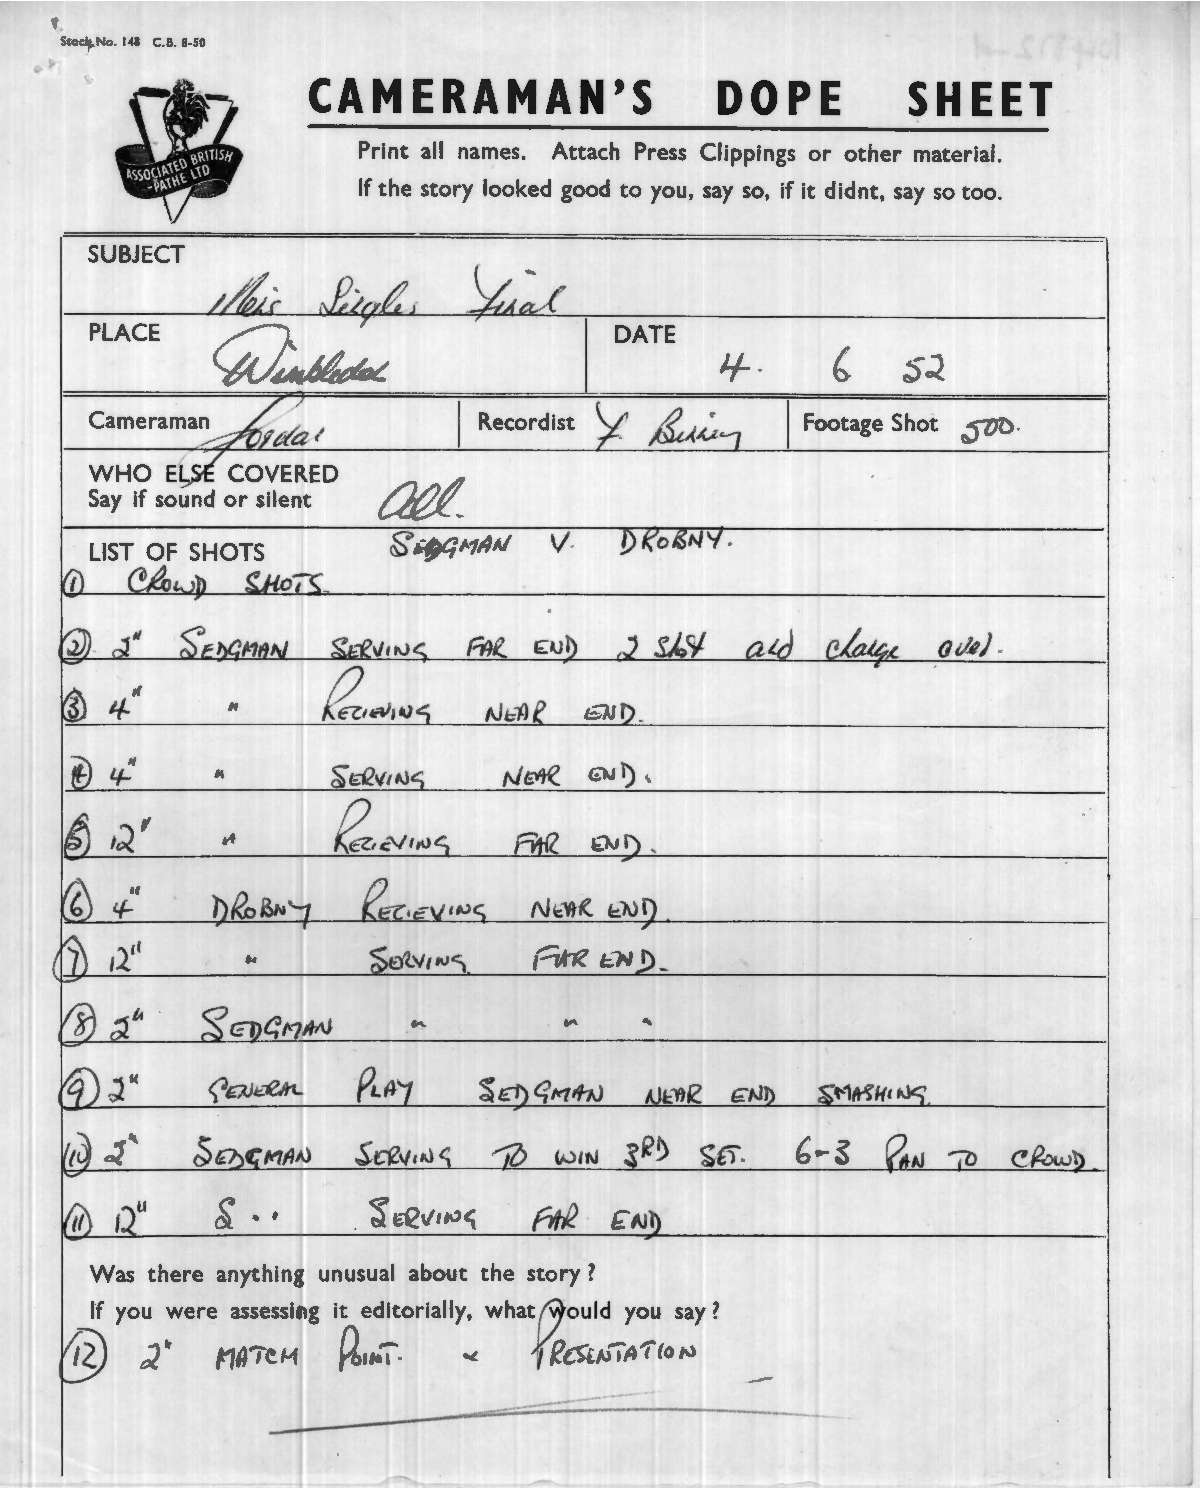 Stock No. 148 C.B. 8-50
CAMERAMAN'S DOPE SHEET
ASSOCIATED BRITISH
-PATHE LTD
Print all names. Attach Press Clippings or other material.
If the story looked good to you, say so, if it didnt, say so too.
SUBJECT
Mens Singles Final
PLACE Wimbledon DATE 4. 6 52
Cameraman Jordan Recordist F. Footage Shot 500.
WHO ELSE COVERED
Say if sound or silent All.
LIST OF SHOTS SEDGMAN V. DROBNY.
1 CROWD SHOTS.
2 2" SEDGMAN SERVING FAR END 2 shot and change over.
3 4" " RECIEVING NEAR END.
4 4" " SERVING NEAR END.
5 12" " RECIEVING FAR END.
6 4" DROBNY RECIEVING NEAR END.
7 12" " SERVING FAR END.
8 2" SEDGMAN " " "
9 2" GENERAL PLAY SEDGMAN NEAR END SMASHING.
10 2" SEDGMAN SERVING TO WIN 3RD SET. 6-3 PAN TO CROWD.
11 12" S.. SERVING FAR END
Was there anything unusual about the story?
If you were assessing it editorially, what would you say?
12 2" MATCH POINT. & PRESENTATION